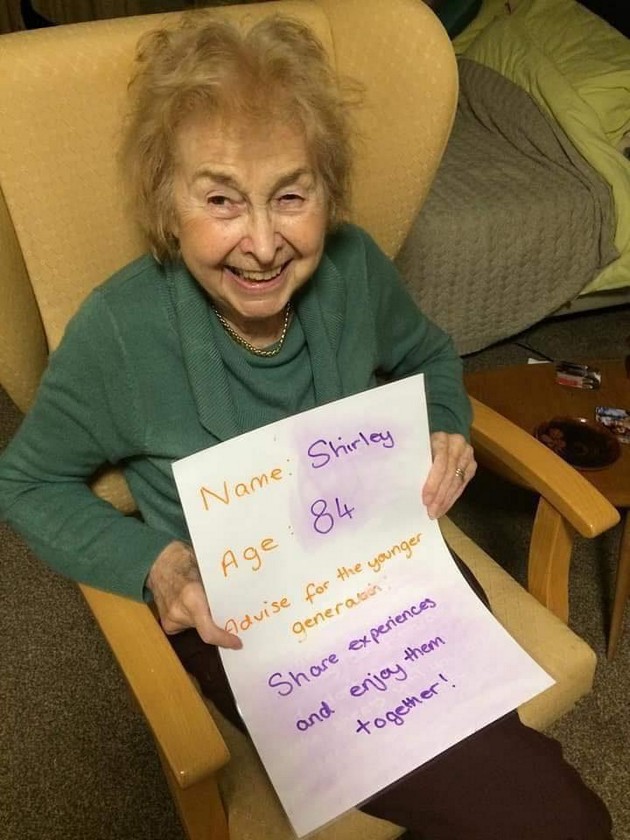 Name: Shirley
Age: 84
Advise for the younger
generaion:
Share experiences
and enjoy them
together!